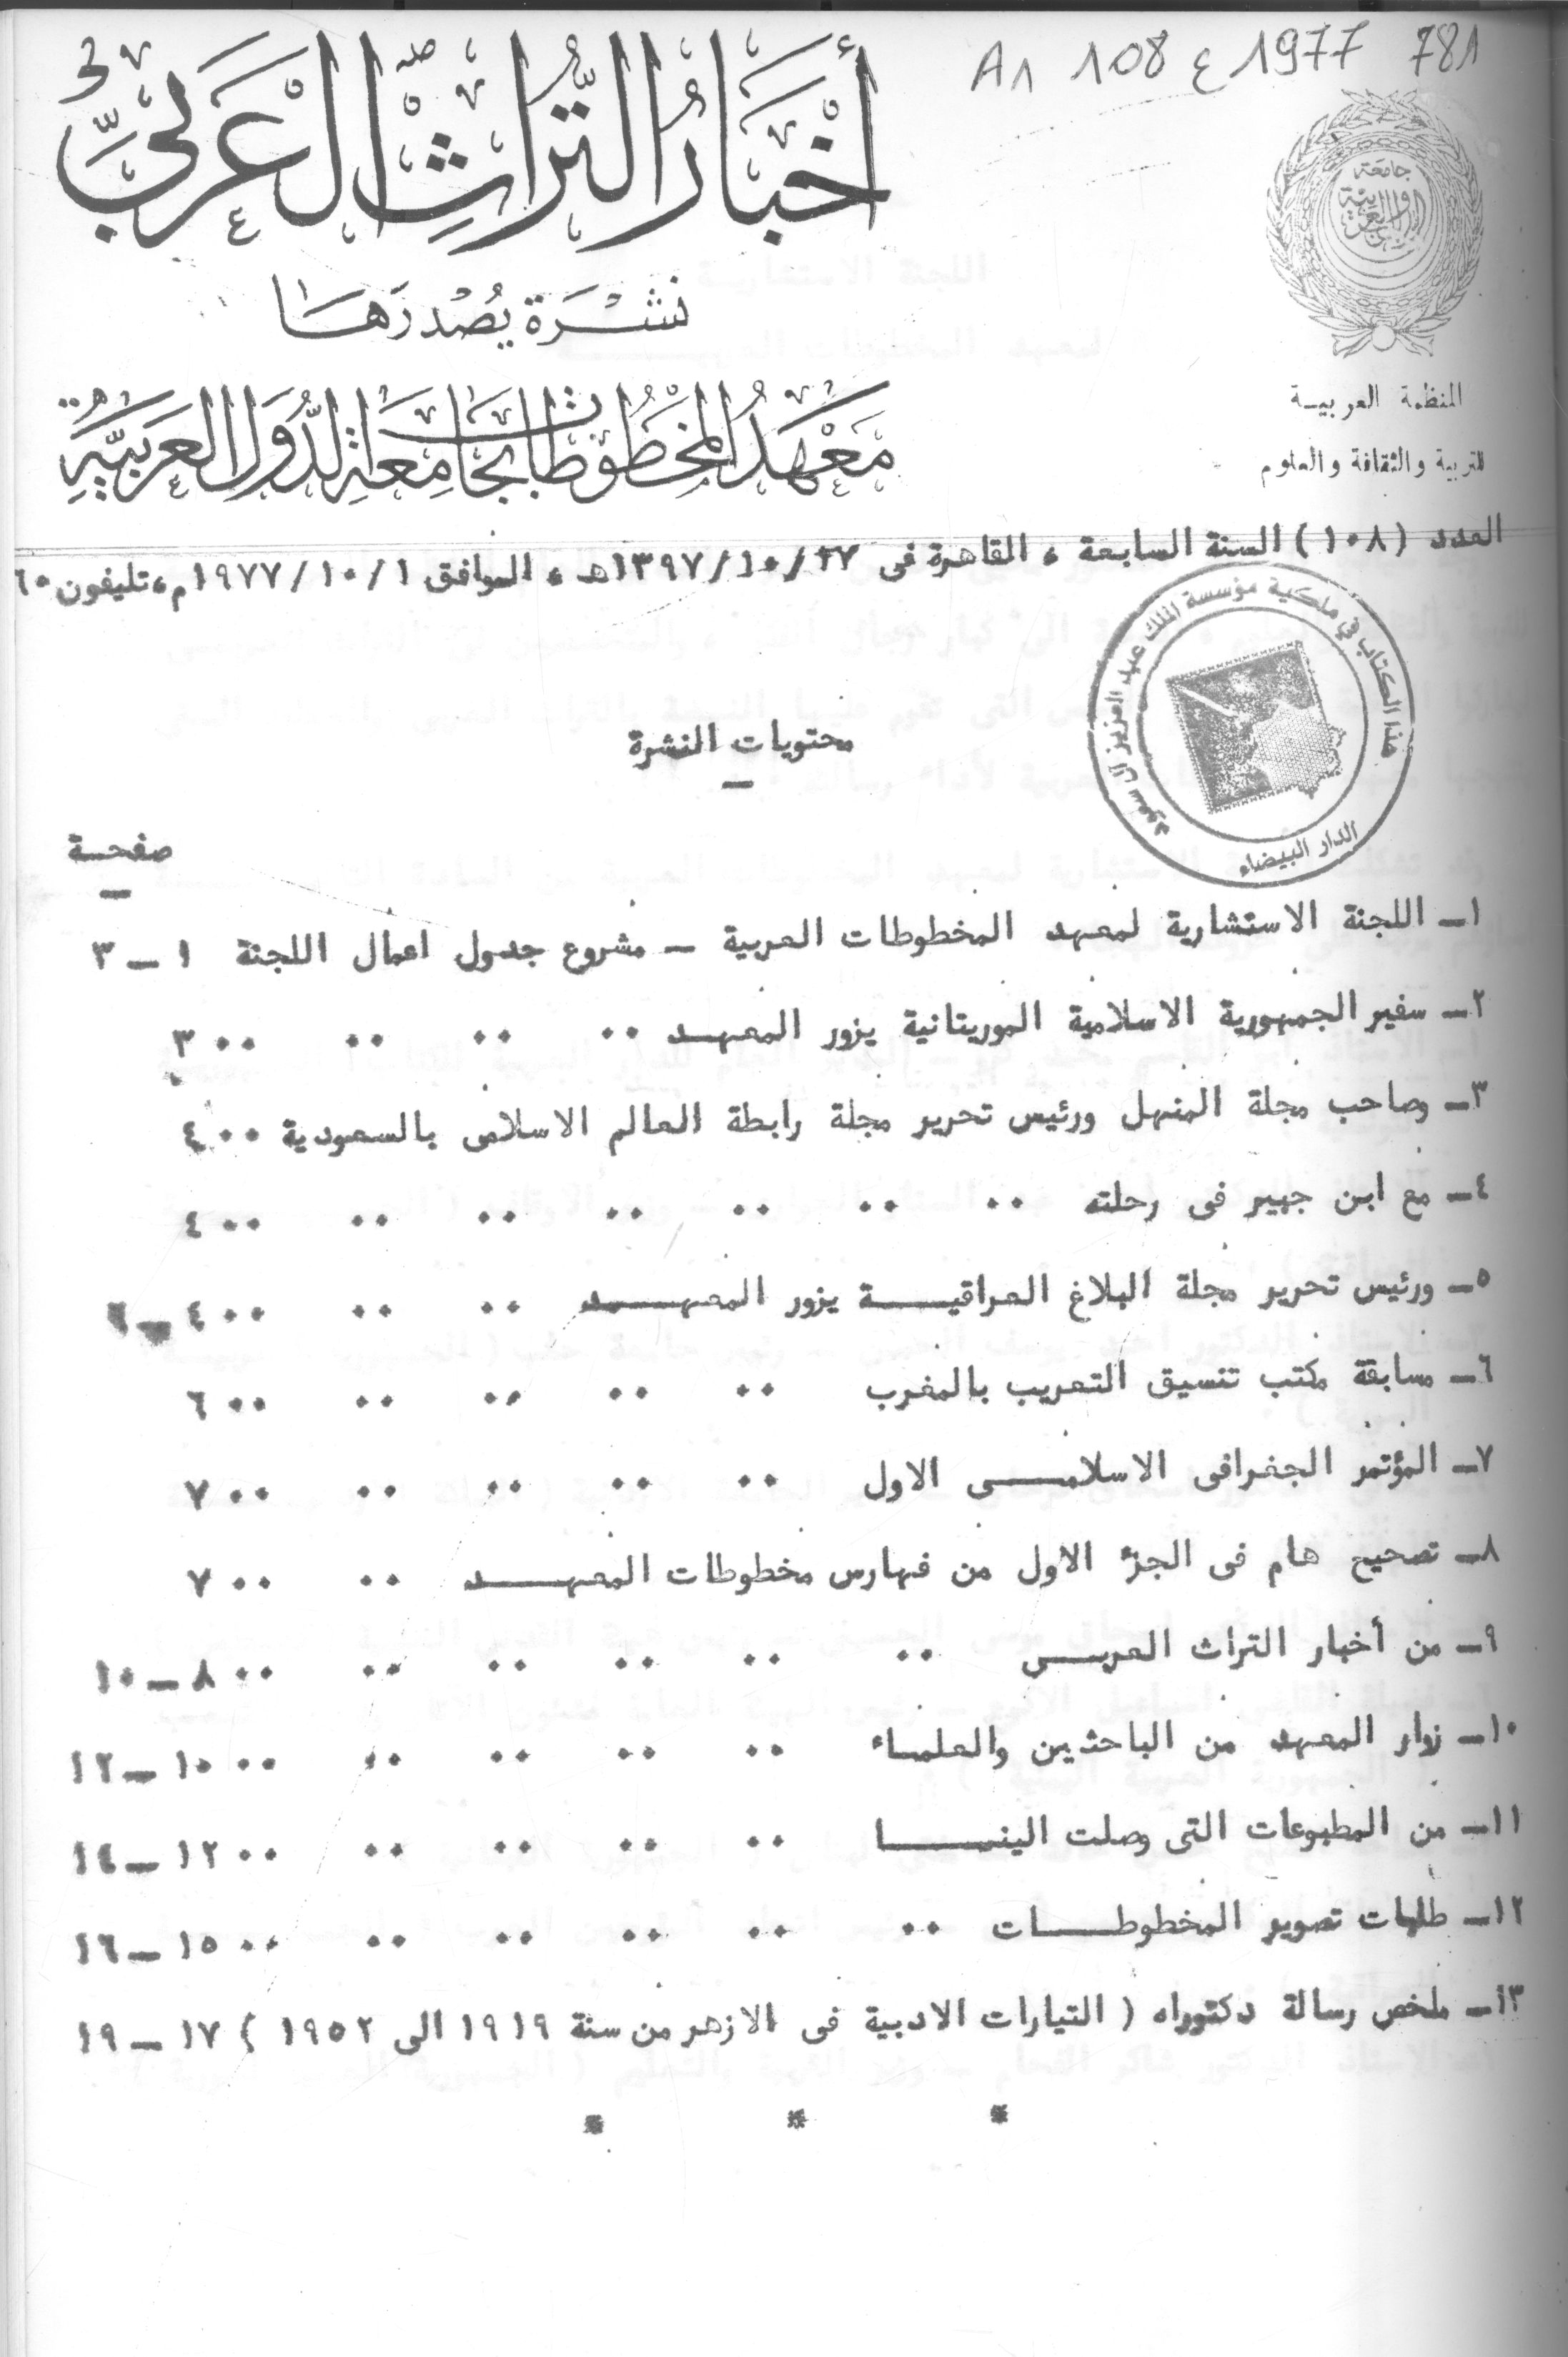 A1 108 ع 1977 781
أَخْبَارُ التُّرَاثِ الْعَرَبِيِّ
نَشْرَة يُصْدِرَهَا
مَعْهَدُ المَخْطُوطَاتِ بجَامِعَةِ الدُّوَلِ العَرَبِيَّةِ
جامعة
الدول العربية
المنظمة العربيـة
للتربية والثقافة والعلوم
العدد (١٠٨) السنة السابعة ، القاهرة فى ٢٧/١٠/١٣٩٧هـ ، الموافق ١/١٠/١٩٧٧م ، تليفون ٦٠
هذا الكتاب في ملكية مؤسسة الملك عبد العزيز آل سعود
الدار البيضاء
محتويات النشرة
صفحـة
١ـ اللجنة الاستشارية لمعهد المخطوطات العربية ـ مشروع جدول اعمال اللجنة ١ ـ ٣
٢ـ سفير الجمهورية الاسلامية الموريتانية يزور المعهـد ٠٠ ٠٠ ٠٠ ٠٠ ٣
٣ـ وصاحب مجلة المنهل ورئيس تحرير مجلة رابطة العالم الاسلامى بالسعودية ٠٠ ٤
٤ـ مع ابن جبير فى رحلته ٠٠ ٠٠ ٠٠ ٠٠ ٠٠ ٠٠ ٠٠ ٤
٥ـ ورئيس تحرير مجلة البلاغ العراقيـــة يزور المعهـــد ٠٠ ٠٠ ٠٠ ٤ ـ ٦
٦ـ مسابقة مكتب تنسيق التعريب بالمغرب ٠٠ ٠٠ ٠٠ ٠٠ ٠٠ ٦
٧ـ المؤتمر الجغرافى الاسلامــى الاول ٠٠ ٠٠ ٠٠ ٠٠ ٠٠ ٧
٨ـ تصحيح هام فى الجزء الاول من فهارس مخطوطات المعهــد ٠٠ ٠٠ ٧
٩ـ من أخبار التراث العربـى ٠٠ ٠٠ ٠٠ ٠٠ ٠٠ ٠٠ ٨ ـ ١٠
١٠ـ زوار المعهد من الباحثين والعلماء ٠٠ ٠٠ ٠٠ ٠٠ ٠٠ ١٠ ـ ١٢
١١ـ من المطبوعات التى وصلت الينـــا ٠٠ ٠٠ ٠٠ ٠٠ ٠٠ ١٢ ـ ١٤
١٢ـ طلبات تصوير المخطوطــات ٠٠ ٠٠ ٠٠ ٠٠ ٠٠ ٠٠ ١٥ ـ ١٦
١٣ـ ملخص رسالة دكتوراه ( التيارات الادبية فى الازهر من سنة ١٩١٩ الى ١٩٥٢ ) ١٧ ـ ١٩
* * *